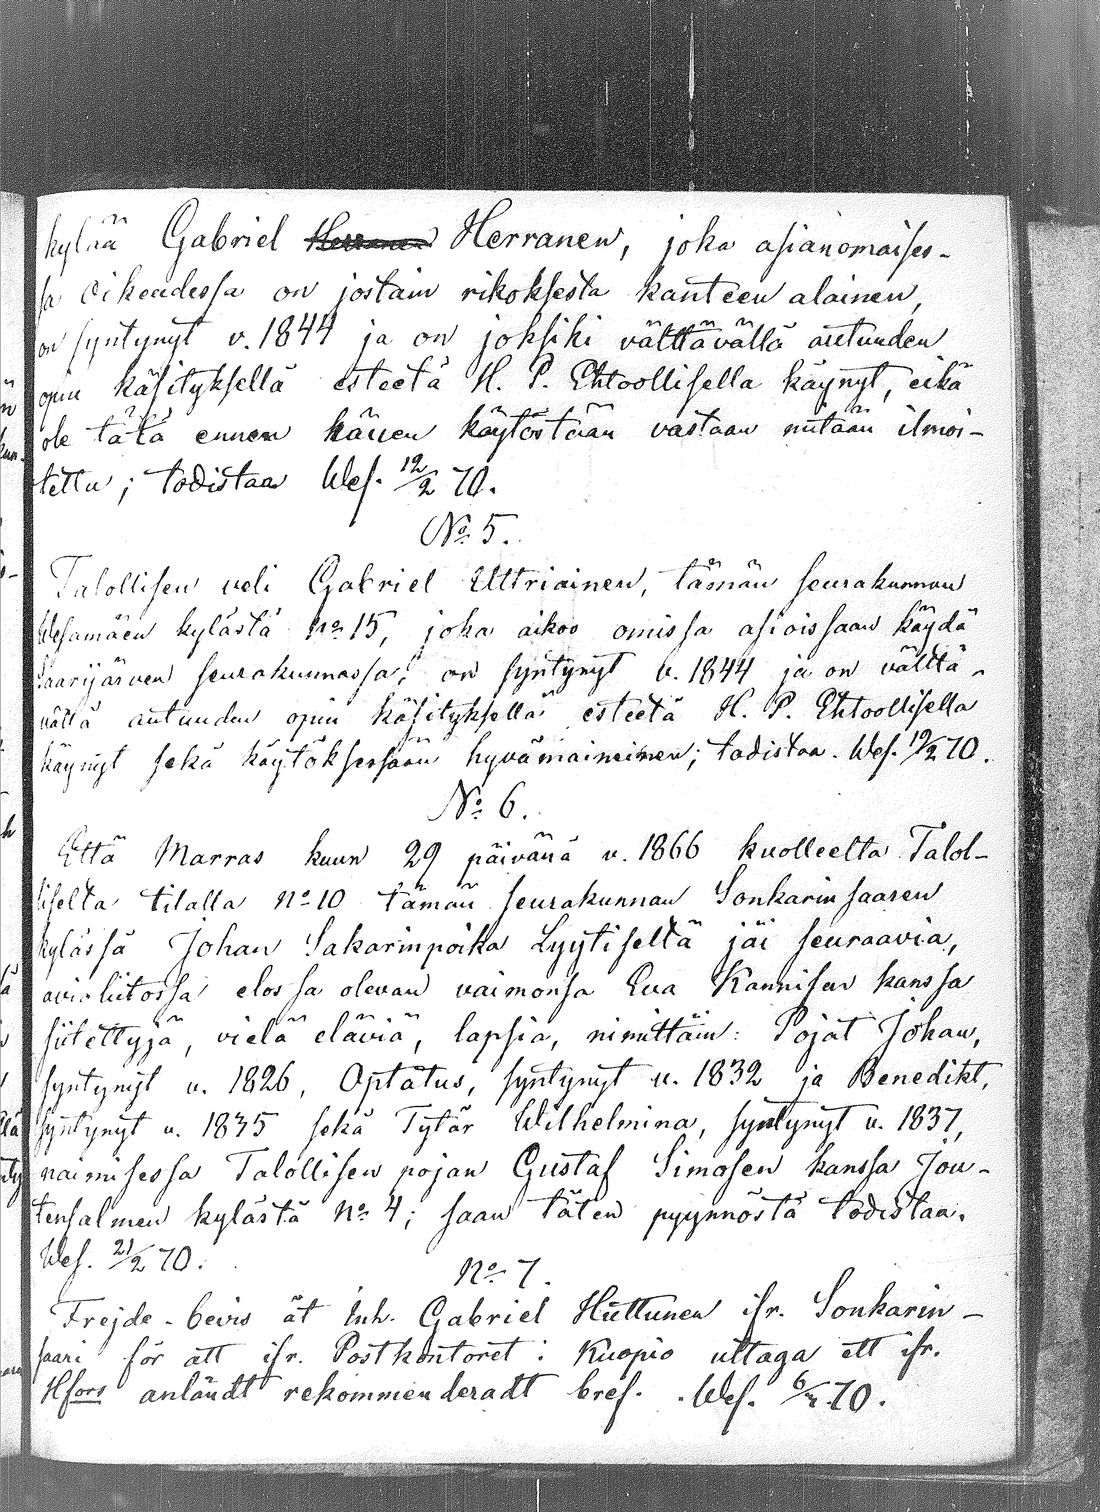 kylää Gabriel Herranen, joka asianomaises-
sa Oikeudessa on jostain rikoksesta kanteen alainen,
on syntynyt v. 1844 ja on joksiki välttävällä autuuden
opin käsityksellä esteetä H. P. Ehtoollisella käynyt, eikä
ole tätä ennen hänen käytöstään vastaan mitään ilmoi-
tettu; todistaa Wes. 12/2 70.
No 5.
Talollisen veli Gabriel Uttriainen, tämän seurakunnan
Wesamäen kylästä No 15, joka aikoo omissa asioissaan käydä
Saarijärven seurakunnassa, on syntynyt v. 1844 ja on välttä-
vällä autuuden opin käsityksellä esteetä H. P. Ehtoollisella
käynyt sekä käytöksessään hyvämaineinen; todistaa. Wes. 19/2 70.
No 6.
Että Marras kuun 29 päivänä v. 1866 kuolleelta Talol-
liselta tilalla No 10 tämän seurakunnan Sonkarinsaaren
kylässä Johan Sakarinpoika Lyytiseltä jäi seuraavia,
avioliitossa elossa olevan vaimonsa Eva Kannisen kanssa
siitettyjä, vielä eläviä, lapsia, nimittäin: Pojat Johan,
syntynyt v. 1826, Optatus, syntynyt v. 1832 ja Benedikt,
syntynyt v. 1835 sekä Tytär Wilhelmina, syntynyt v. 1837,
naimisessa Talollisen pojan Gustaf Simosen kanssa Jou-
tensalmen kylästä No 4; saan täten pyynnöstä todistaa.
Wes. 21/2 70.
No 7.
Frejde-bevis åt Inh. Gabriel Huttunen ifr. Sonkarin-
saari för att ifr. Postkontoret i Kuopio uttaga ett ifr.
Hfors anländt rekommenderadt bref. Wes. 70.